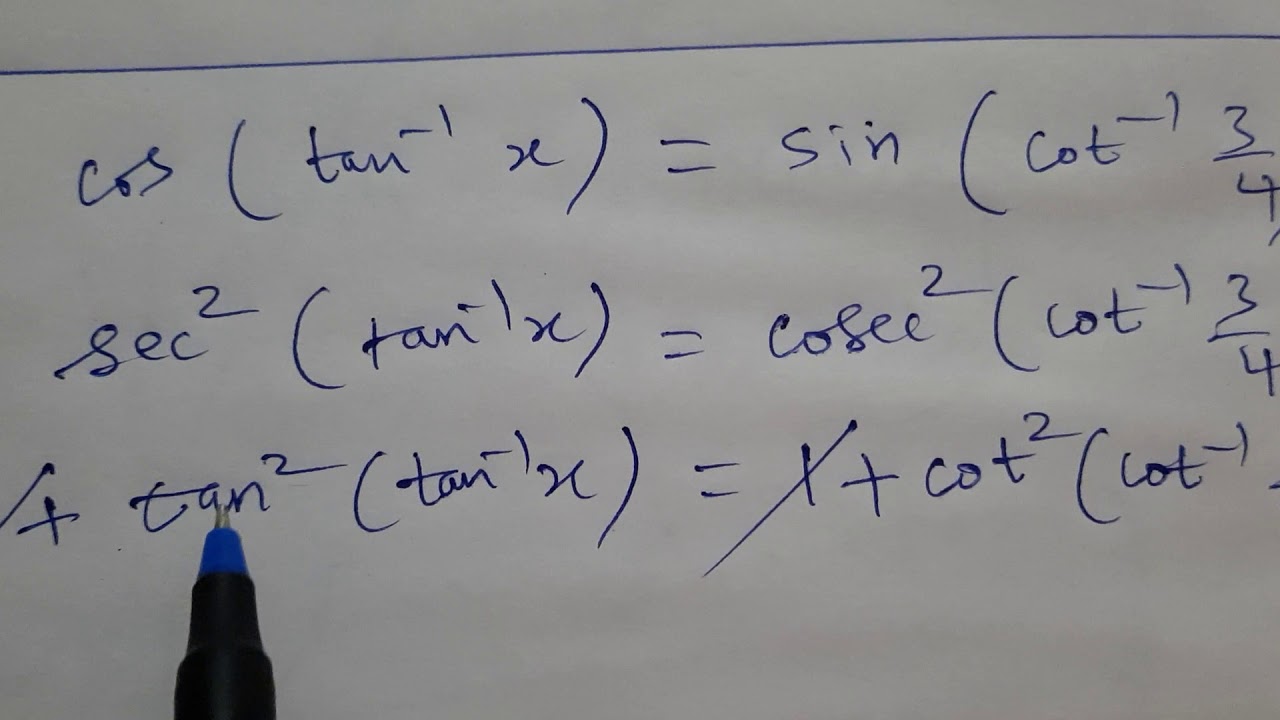 cos (tan⁻¹ x) = sin (cot⁻¹ 3/4)
sec² (tan⁻¹ x) = cosec² (cot⁻¹ 3/4
+ tan² (tan⁻¹ x) = 1 + cot² (cot⁻¹